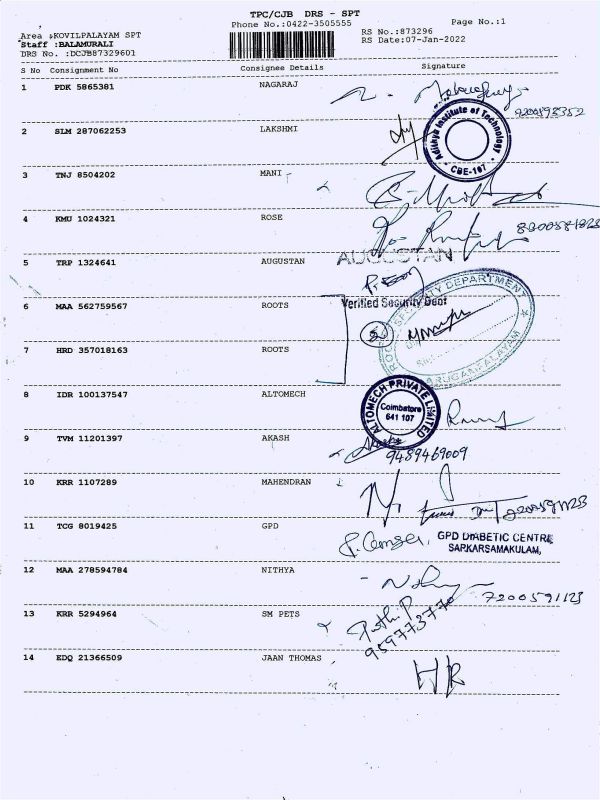 TPC/CJB DRS - SPT
Phone No.:0422-3505555
Page No.:1
Area :KOVILPALAYAM SPT
RS No.:873296
Staff :BALAMURALI
RS Date:07-Jan-2022
DRS No. :DCJB87329601
S No Consignment No Consignee Details Signature
1 PDK 5865381 NAGARAJ
2 SLM 287062253 LAKSHMI
Adithya Institute of Technology
CBE-107
3 TNJ 8504202 MANI
4 KMU 1024321 ROSE
5 TRP 1324641 AUGUSTAN AUGUSTAN
6 MAA 562759567 ROOTS
Verified Security Dept
SECURITY DEPARTMENT
7 HRD 357018163 ROOTS
8 IDR 100137547 ALTOMECH
ALTOMECH PRIVATE LIMITED
Coimbatore
641 107
9 TVM 11201397 AKASH
9489469009
10 KRR 1107289 MAHENDRAN
11 TCG 8019425 GPD
GPD DIABETIC CENTRE
SARKARSAMAKULAM,
12 MAA 278594784 NITHYA
7200591123
13 KRR 5294964 SM PETS
959773770
14 EDQ 21366509 JAAN THOMAS
HR